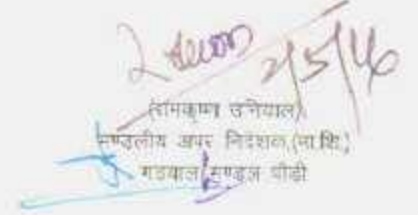 2/5/16
(रामकृष्ण उनियाल)
मण्डलीय अपर निदेशक (मा.शि.)
गढवाल मण्डल पौड़ी